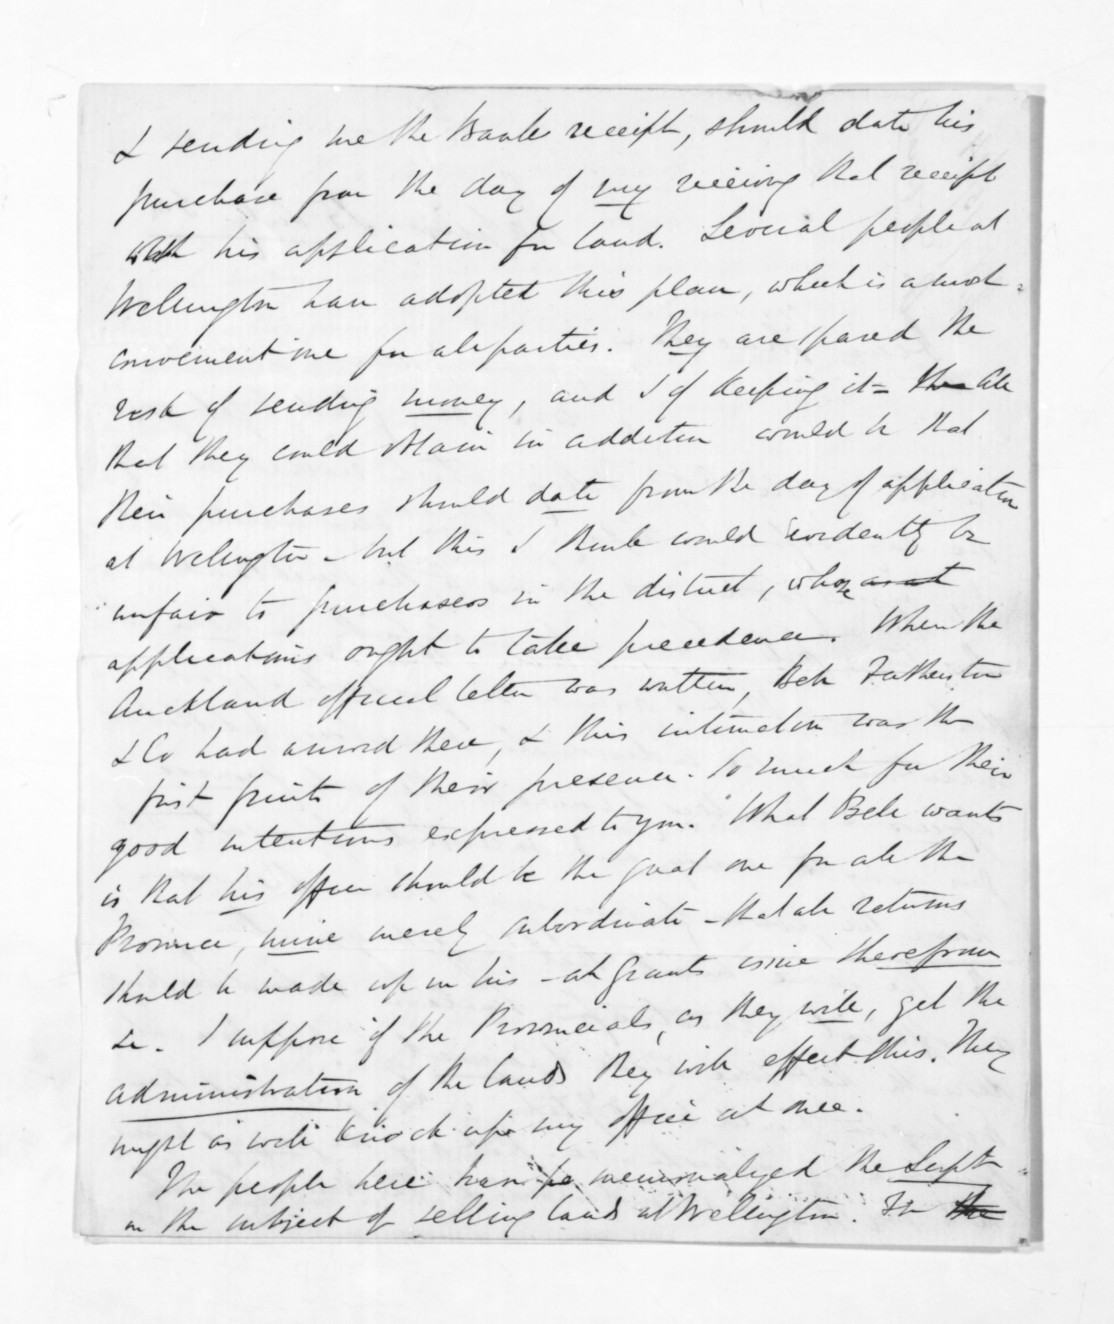 & sending me the Bank receipt, should date his
purchase from the day of my receiving that receipt
with his application for land. Several people at
Wellington have adopted this plan, which is a most
convenient one for all parties. They are spared the
risk of sending money, and I of keeping it - the All
that they could obtain in addition would be that
their purchases should date from the day of application
at Wellington - but this I think would evidently be
unfair to purchasers in the district, whose as at
applications ought to take precedence. When the
Auckland official letter was written, Bell Fatherston
& Co had arrived there, & this intimation was the
first fruits of their presence. So much for their
good intentions expressed to you. What Bell wants
is that his office should be the great one for all the
Province, mine merely subordinate - that all returns
should be made up in his - all grants issue therefrom
&c. I suppose if the Provincials, as they will, get the
administration of the lands they will effect this. They
might as well knock up my office at once.
The people here have memorialized the Supt
on the subject of selling lands at Wellington. For the